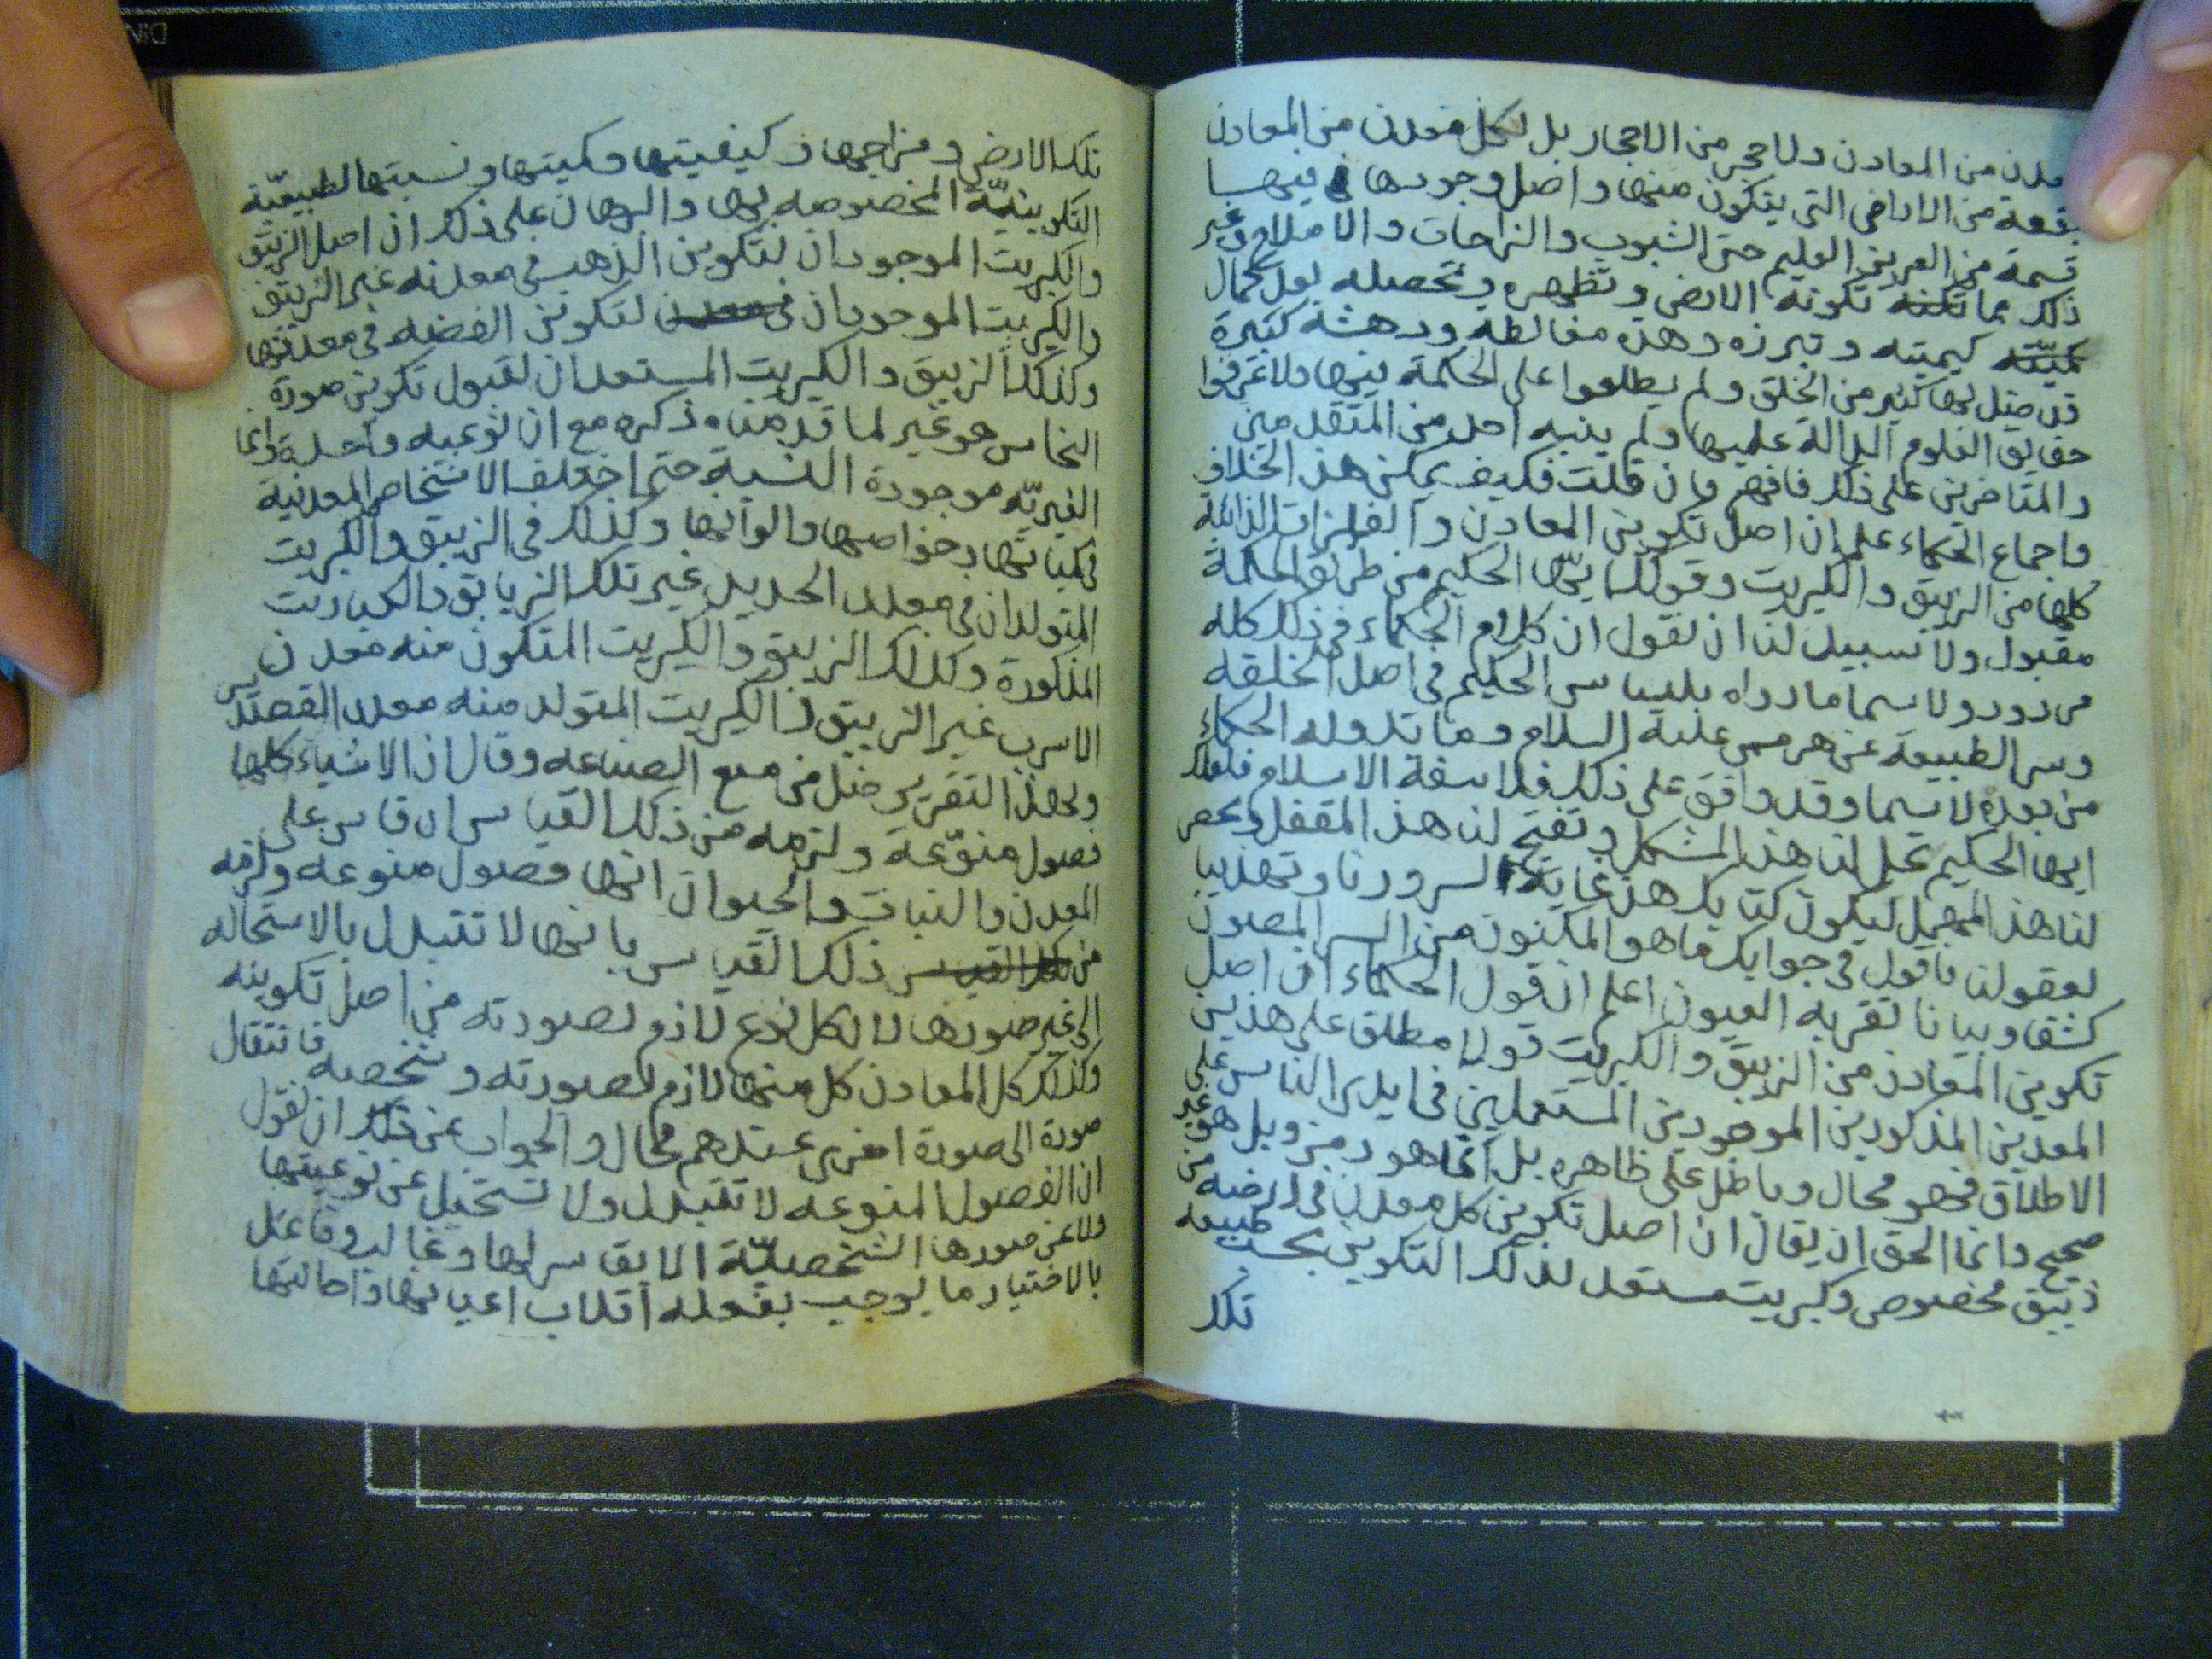 معدن من المعادن ولا حجر من الاحجار بل لكل معدن من المعادن
بقعة من الاراضى التى يتكون منها واصل وجودها فيها
قسمة من العزيز العليم حتى الشبوب والزاجات والاملاح وغير
ذلك مما تكونه الارض وتظهره وتحصله بعد كمال
كيميته وتبرزه وهذه مغالطة ودهشة كبيرة
قد ضل بها كثير من الخلق ولم يطلعوا على الحكمة فيها ولا عرفوا
حقايق العلوم الدالة عليها ولم ينبه احد من المتقدمين
والمتاخرين على ذلك فافهم وان قلت فكيف يمكن هذا الخلاف
واجماع الحكماء على ان اصل تكوين المعادن والفلزات الذائبة
كلها من الزيبق والكبريت وقولك ايها الحكيم من طريق الحكمة
مقبول ولا سبيل لنا ان نقول ان كلام الحكماء فى ذلك كله
مردود ولا سيما ما رواه بليناس الحكيم فى اصل الخلقه
وسر الطبيعة عن هرمس عليه السلام وما تدوله الحكماء
من بعده لا سيما وقد وافق على ذلك فلاسفة الاسلام فلعلك
ايها الحكيم تحل لنا هذا المشكل وتفتح لنا هذا المقفل
لنا هذا المهمل ليكون كتابك هذا غاية لسرورنا وتهذيبا
لعقولنا فاقول فى جوابك ما هو المكنون من السر المصون
كشفا وبيانا تقر به العيون اعلم ان قول الحكماء ان اصل
تكوين المعادن من الزيبق والكبريت قولا مطلق على هذين
المعدنين المذكورين الموجودين المستعملين فى ايدى الناس على
الاطلاق فهو محال وباطل على ظاهره بل انما هو رمز وبل هو غير
صحيح وانما الحق ان يقال ان اصل تكوين كل معدن فى ارضه من
زيبق مخصوص وكبريت مستعد لذلك التكوين بحسب طبيعه
تلك
تلك الارض ومزاجها وكيفيتها وكميتها ونسبتها الطبيعيّة
التكوينيّة المخصوصه بها والبرهان على ذلك ان اصل الزيبق
والكبريت الموجودان لتكوين الذهب فى معدنه غير الزيبق
والكبريت الموجودان فى معدن لتكوين الفضه فى معدنها
وكذلك الزيبق والكبريت المستعدان لقبول تكوين صورة
النحاس هو غير لما قدمناه ذكره مع ان نوعيه واحدة وانما
الغيريّه موجودة النسبة حتما اختلف الاشخاص المعدنية
فى كيانها وخواصها والوانها وكذلك فى الزيبق والكبريت
المتولدان فى معدن الحديد غير تلك الزيابق والكباريت
المذكورة وكذلك الزيبق والكبريت المتكون منه معدن
الاسرب غير الزيبق والكبريت المتولد منه معدن القصدير
وبهذا التقرير ضل من منع الصناعه وقال ان الاشياء كلها
فصول منوّعة ولزمه من ذلك القياس ان قاس على
المعدن والنبات والحيوان انها فصول منوعه ولزمه
من ذلك القياس بانها لا تتبدل بالاستحاله
الى غير صورها لان لكل نوع لازم لصورته من اصل تكوينه
وكذلك كل المعادن كل منها لازم لصورته وشخصه فانتقال
صورة الى صورة اخرى عندهم محال والجواب عن ذلك ان نقول
ان الفصول المنوعه لا تتبدل ولا تستحيل عن نوعيتها
ولا عن صورها الشخصيّة الا بقاسر لها وغالب وفاعل
بالاختيار ما يوجب بفعله اقلاب اعيانها واحالتها